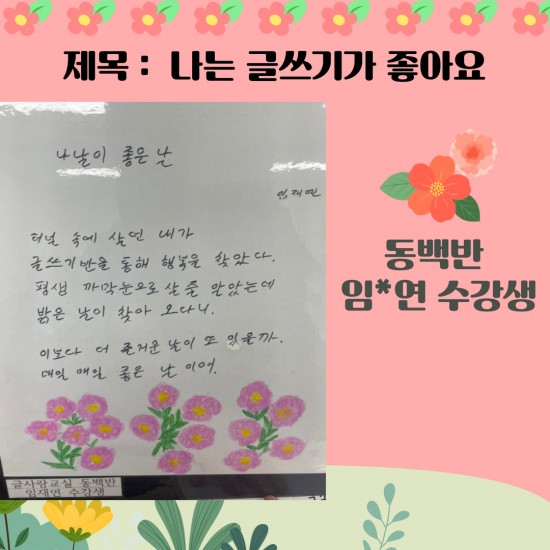 제목 : 나는 글쓰기가 좋아요
나날이 좋은 날
임재연
터널 속에 살던 내가
글쓰기반을 통해 행복을 찾았다.
평생 까막눈으로 살 줄 알았는데
밝은 날이 찾아 오다니.
이보다 더 즐거운 날이 또 있을까.
매일 매일 좋은 날 이여.
글사랑교실 동백반
임재연 수강생
동백반
임*연 수강생